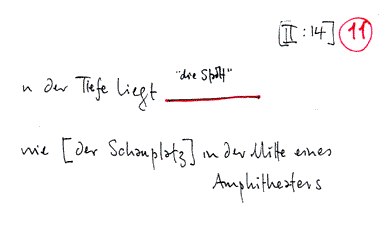 [II:14] 11
"die Stadt"
n der Tiefe liegt
wie [der Schauplatz] in der Mitte eines
Amphitheaters